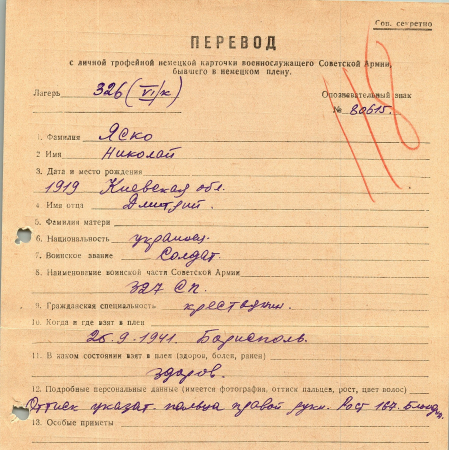 Сов. секретно
ПЕРЕВОД
с личной трофейной немецкой карточки военнослужащего Советской Армии,
бывшего в немецком плену.
Лагерь 326 (VI/к) Опознавательный знак
№ 80615.
1. Фамилия Яско
2 Имя Николай
3. Дата и место рождения
1919 Киевская обл.
4. Имя отца Дмитрий.
5. Фамилия матери
6. Национальность украинец.
7. Воинское звание Солдат.
8. Наименование воинской части Советской Армии
327 СП.
9. Гражданская специальность крестьянин.
10. Когда и где взят в плен
25.9.1941. Борисполь.
11. В каком состоянии взят в плен (здоров, болен, ранен)
здоров.
12. Подробные персональные данные (имеется фотография, оттиск пальцев, рост, цвет волос)
Оттиск указат. пальца правой руки. Рост 167. Блондин.
13. Особые приметы